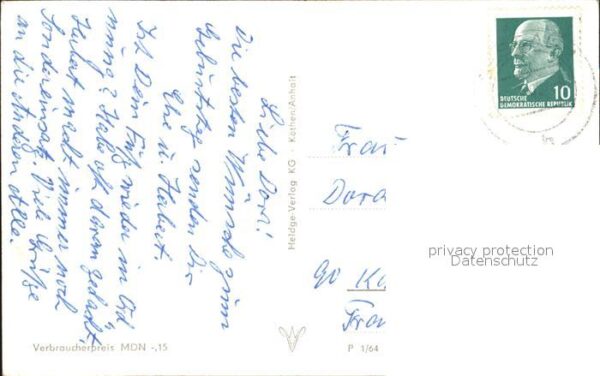 Liebe Dora!
Die besten Wünsche zum
Geburtstag senden Dir
Ehe u. Hubert.
Ist Dein Fuß wieder in Ord
nung? Habe oft daran gedacht.
Hubert macht immer noch
Sondereinsatz. Viele Grüße
an die Anderen Alle.
Verbraucherpreis MDN -,15
Heldge-Verlag KG · Köthen/Anhalt
P 1/64
10
DEUTSCHE
DEMOKRATISCHE REPUBLIK
Frau
Dora
90
Ka
Fra
privacy protection
Datenschutz